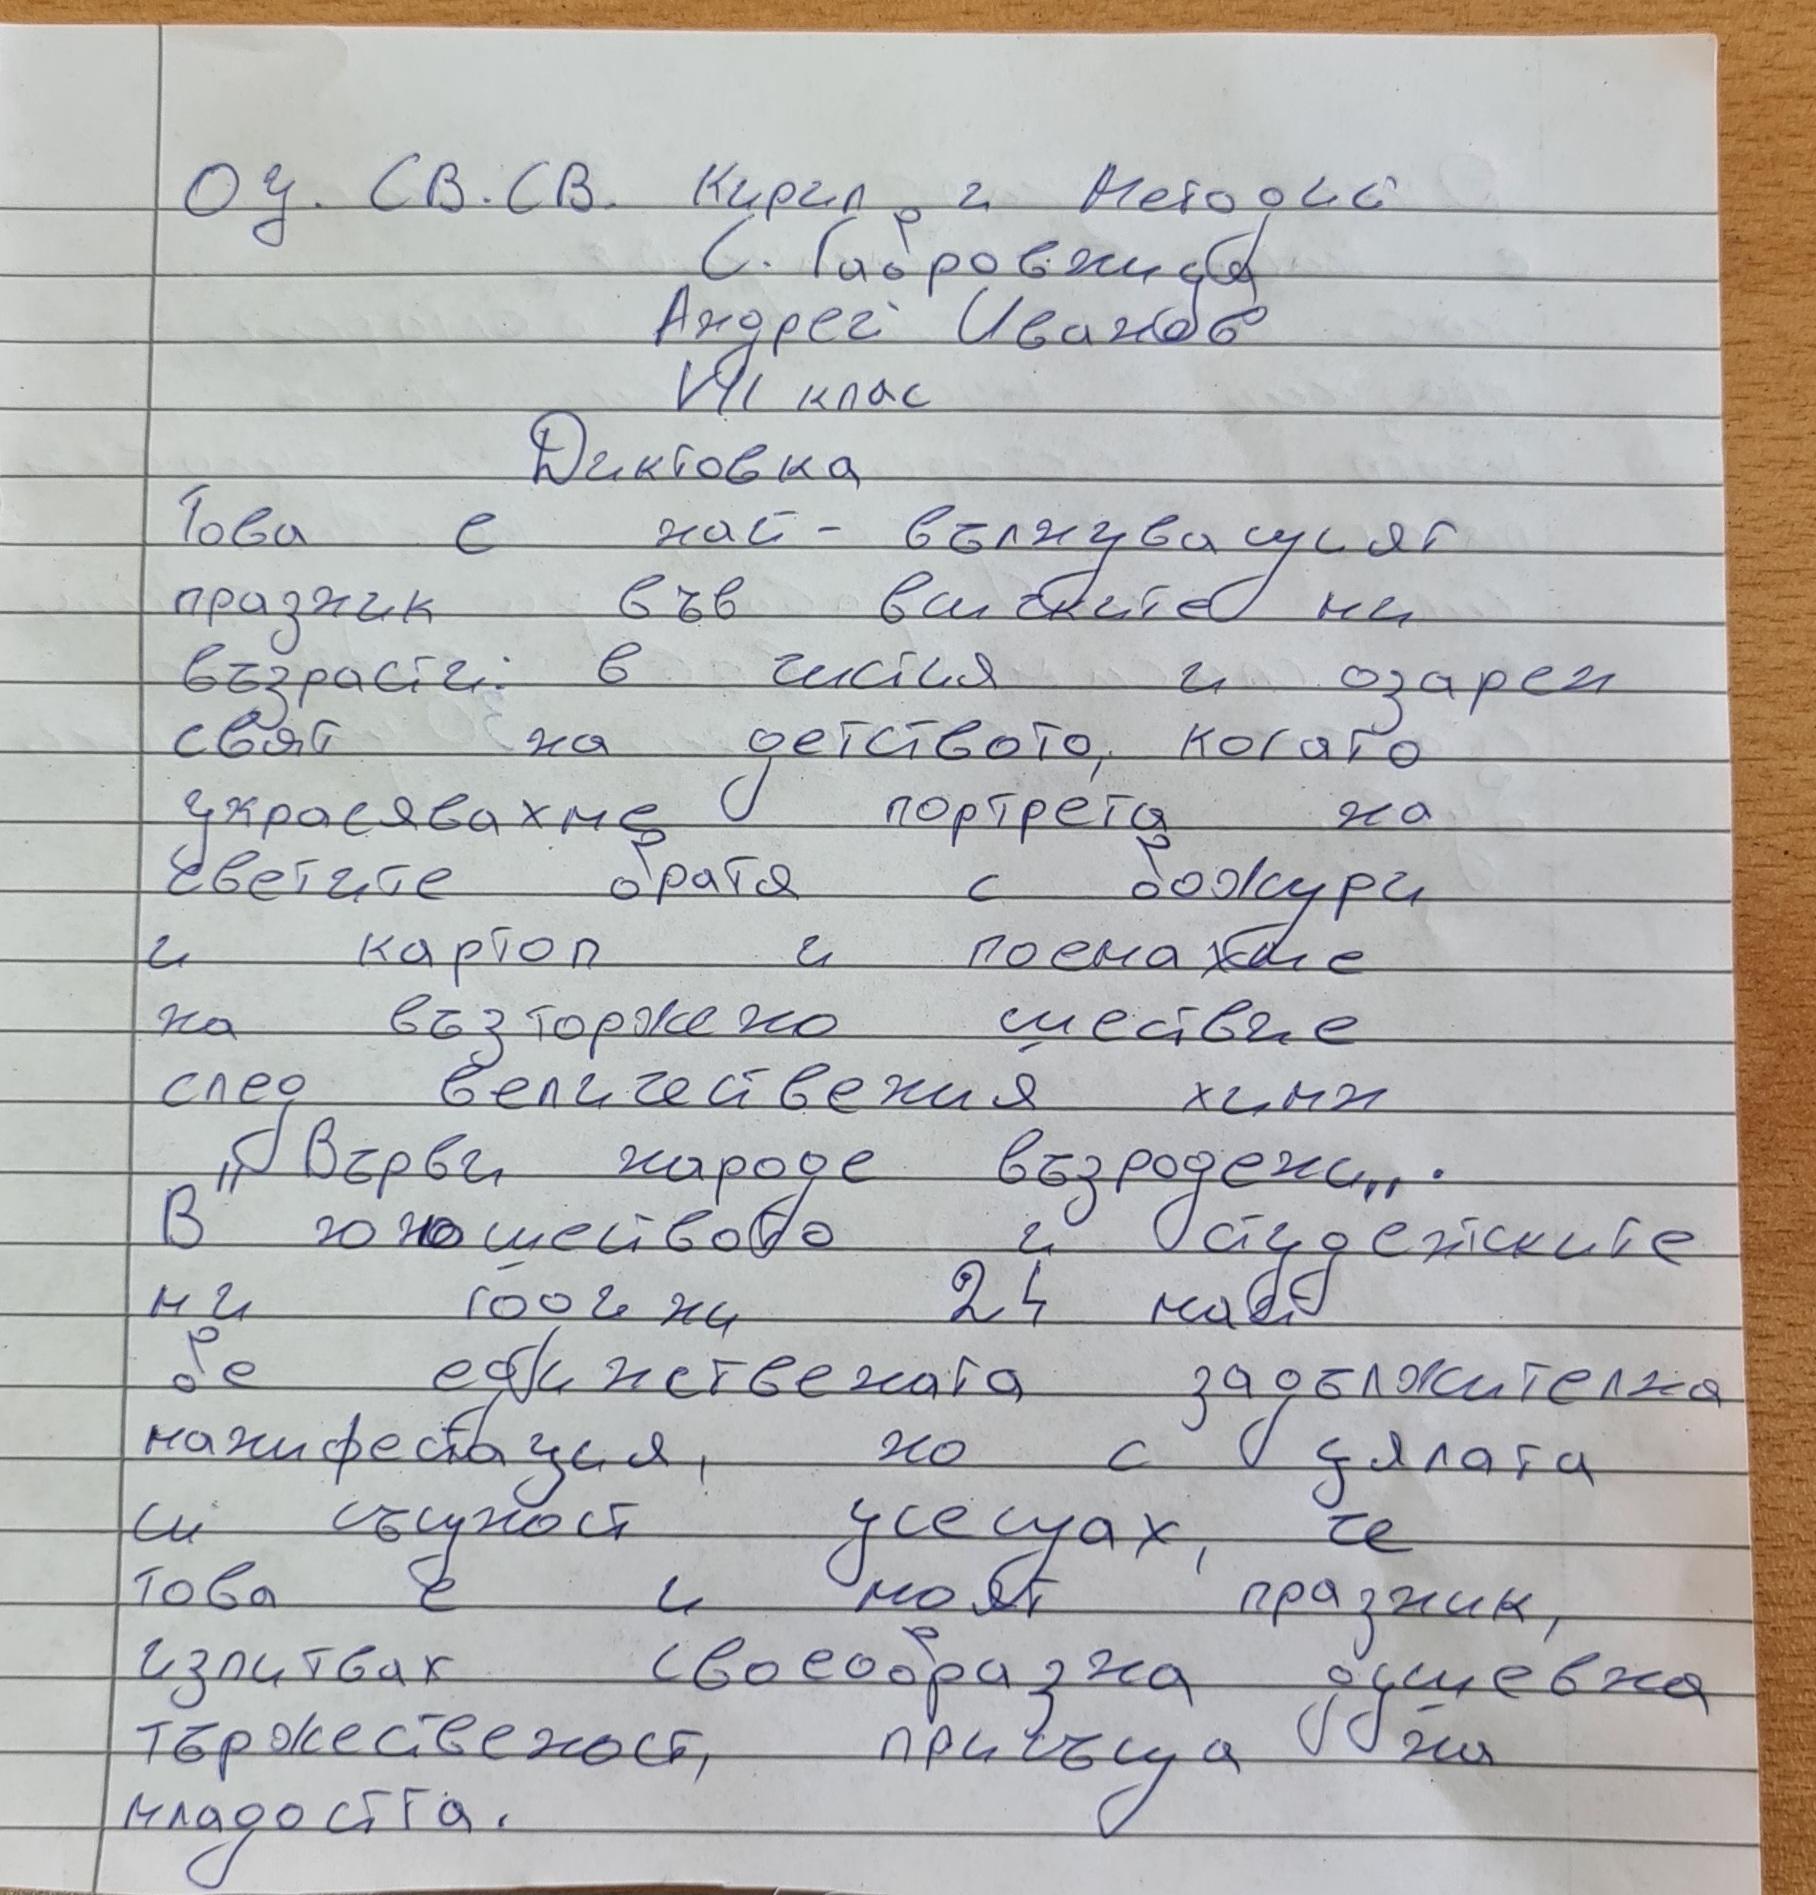 ОУ. СВ. СВ. Кирил и Методий
С. Габровница
Андрей Иванов
VII клас
Диктовка
Това е най-вълнуващият
празник във вичките ми
възрасти: в чистия и озарен
свят на детството, когато
украсявахме портрета на
светите братя с божури
и картоп и поемахме
на възторжено шествие
след величествения химн
„Върви народе възродени„.
В юношеството и студентските
ми години 24 май
бе единствената задължителна
манифестация, но с цялата
си същност усещах, че
това е и моят празник,
изпитвах своеобразна душевна
тържественост, присъща на
младостта.